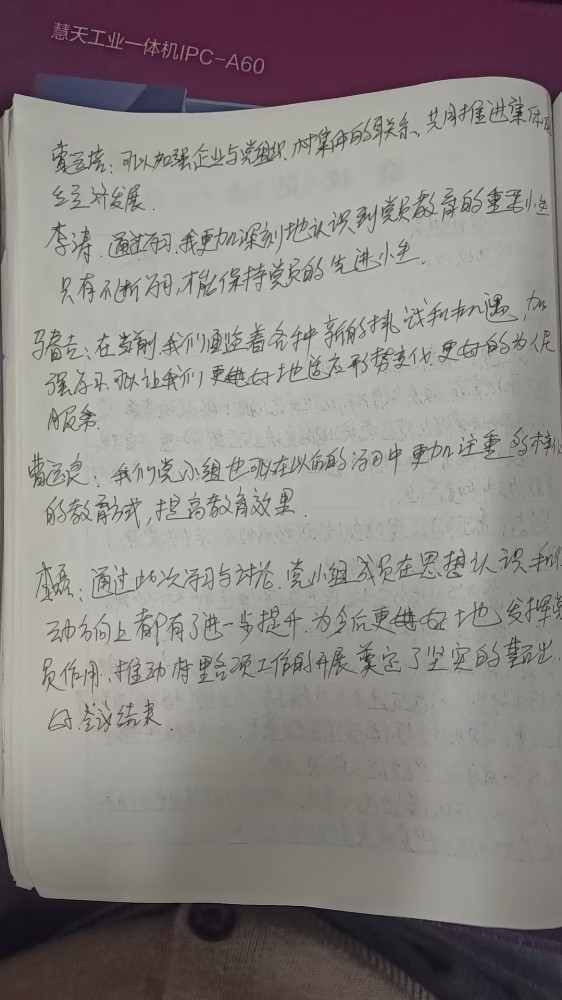 慧天工业一体机IPC-A60
可以加强企业与党组织、村集体的联系。共同推进集体
经济发展.
李涛: 通过学习,我更加深刻地认识到党员教育的重要性
只有不断学习,才能保持党员的先进性.
在当前,我们面临着各种新的挑战和机遇,加
强学习可以让我们更好地适应形势变化.更好的为人民
服务.
曹运良: 我们党小组也可以在以后的活动中更加注重多样化
的教育方式,提高教育效果.
通过此次学习与讨论,党小组成员在思想认识和行
动方向上都有了进一步提升.为今后更好地发挥党
员作用.推动村里各项工作的开展奠定了坚实的基础.
会议结束.